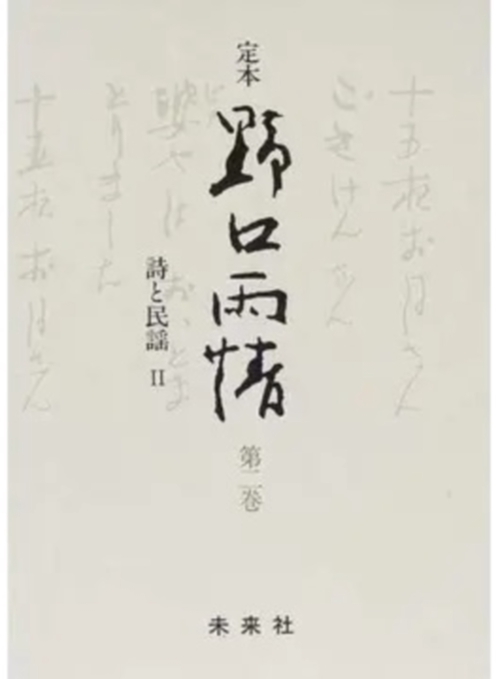 定本
野口雨情
詩と民謡 II
第二巻
未来社
十五夜お月さん
ごきげんさん
婆やは おいとま
とりました
十五夜お月さん